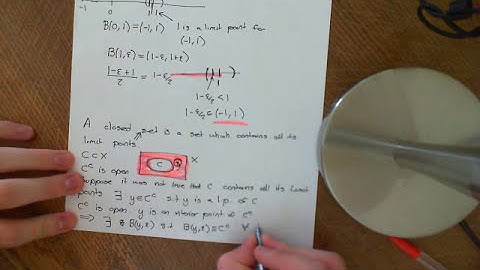 -1 0 1
B(0,1)=(-1,1) 1 is a limit point for
(-1,1)
B(1,ε)=(1-ε,1+ε)
(1-ε+1)/2 = 1-ε/2
1-ε/2 < 1
1-ε/2 ∈ (-1,1)
A closed set is a set which contains all its
limit points.
C ⊂ X
C X
C^c is open
Suppose it was not true that C contains all its limit
points ∃ y∈C^c s.t y is a l.p. of C
C^c is open, y is an interior point of C^c
⇒ ∃ B(y,ε) s.t B(y,ε)⊆C^c ∀